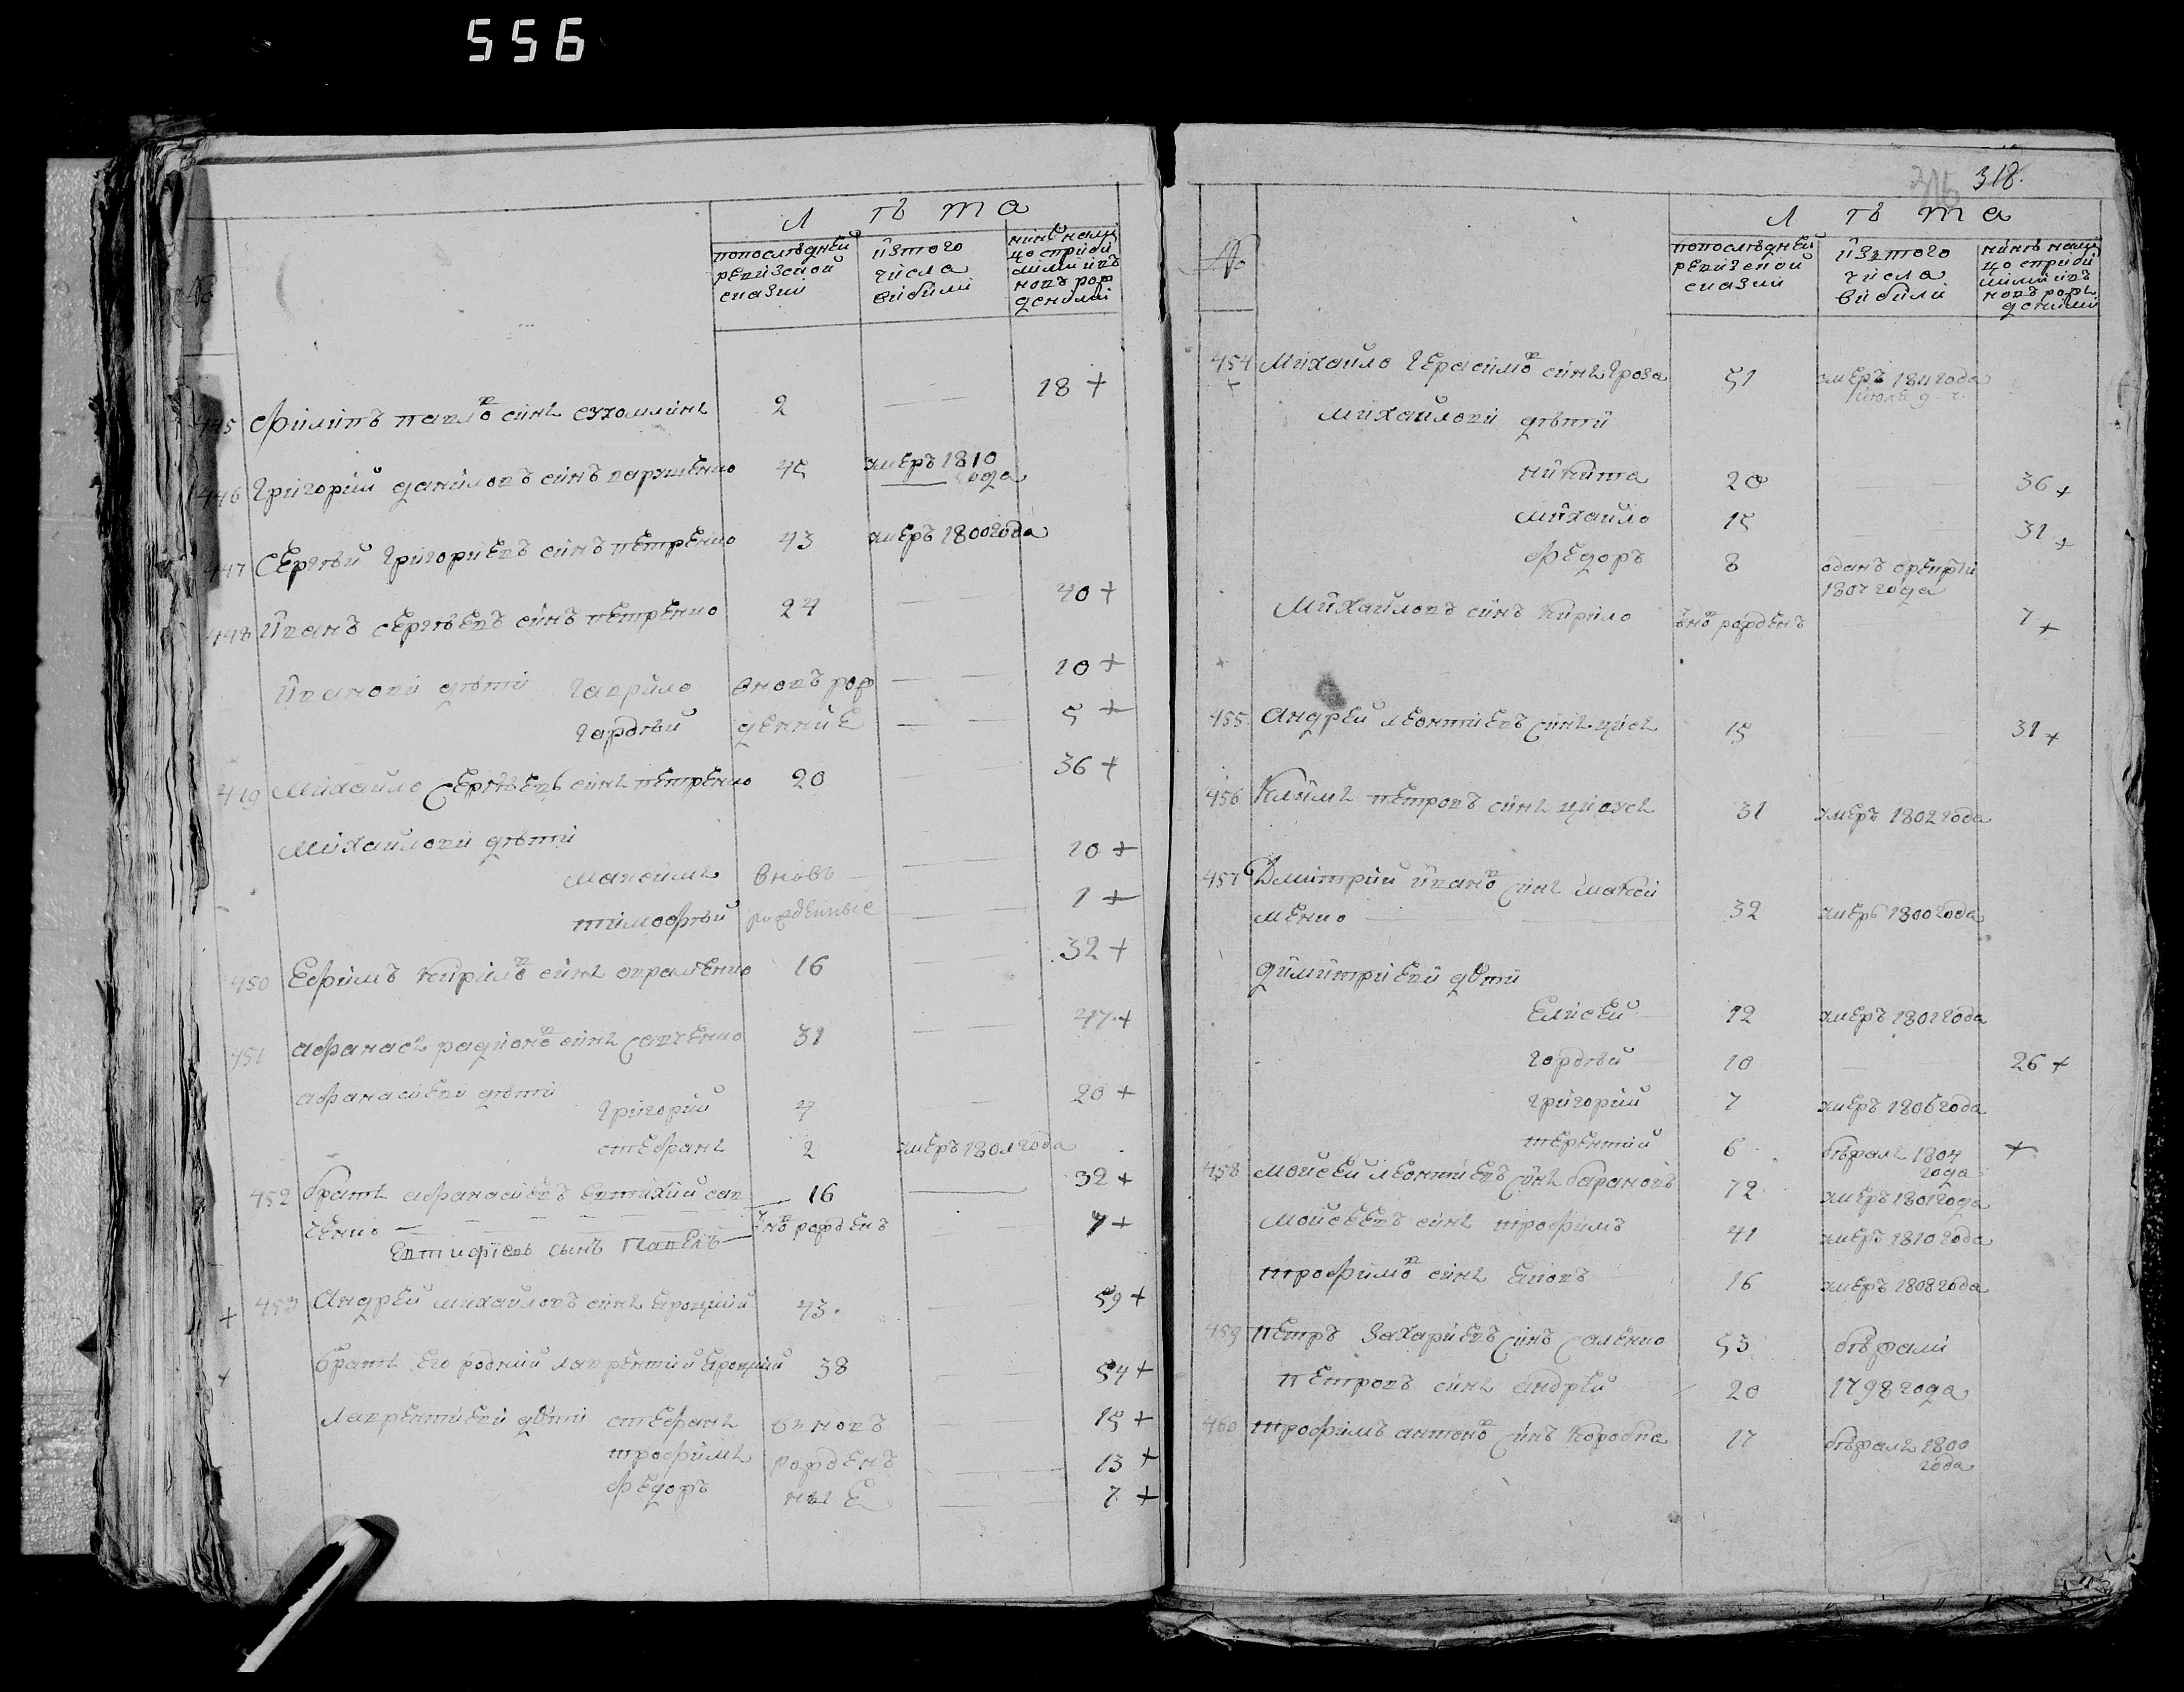 556
Л ѣ т а
№
попослѣдней ревизской сказки
изтого числа выбыли
нынѣ налицо сприбилими ивновъ рожденими
445 Филипъ павлов синъ сухомлинъ 2 — 18 +
446 Григорий даниловъ синъ 45 умеръ 1810 года
447 Сергѣй григориевъ синъ петренко 43 умеръ 1800 года
448 Иванъ сергѣевъ синъ петренко 24 — 40 +
Ивановы дѣти гаврило вновъ рож — 10 +
гордѣй денние — 5 +
449 Михайло сергѣевъ синъ петренко 20 36 +
Михайловы дѣти
максимъ вновь — 10 +
тимофѣй рожденные — 1 +
450 Ефимъ кирилов синъ авраменко 16 — 32 +
451 афанасъ радионов синъ савченко 31 — 47 +
афанасиеви дѣти григорий 4 — 20 +
стефанъ 2 умеръ 1801 года
452 братъ афанасиевъ евтихий сав — 16 — 32 +
ченко — внов рожденъ — 7 +
Евтифіевъ сынъ Павелъ
+ 453 Андрей михайловъ синъ яроцкий 43 — 59 +
+ братъ его родний лаврентий яроцкий 38 — 54 +
лаврентиеви дѣти стефанъ вновъ — 15 +
трофимъ рожденъ — 13 +
федоръ ные — 7 +
318.
Л ѣ т а
№
попослѣдней ревизской сказки
изтого числа выбыли
нинѣ налицо сприбилими ивновъ рожденими
454 + Михайло герасимов синъ гроза 51 умеръ 1811 года
июля 9 - ч.
Михайлови дѣти
никита 20 — 36 +
михайло 15 — 31 +
федоръ 8 1807 года
Михайловъ синъ кирило внов рожденъ — 7 +
455 андрей леонтиевъ синъ 15 — 31 +
456 Климъ петровъ синъ 31 умеръ 1802 года
457 Дмитрий иванов синъ макси
менко — 32 умеръ 1800 года
димитриеви дѣти
Елисей 12 умеръ 1801 года
гордѣй 10 — 26 +
григорий 7 умеръ 1806 года
терентий 6 бѣжалъ 1804 года +
458 Мойсей леонтиевъ синъ барановъ 72 умеръ 1801 года
мойсеевъ синъ трофимъ 41 умеръ 1810 года
трофимов синъ яковъ 16 умеръ 1808 года
459 петръ захариевъ синъ саленко 53 бѣжали
петровъ синъ андрей 20 1798 года
460 трофимъ антонов синъ коробка 17 бѣжалъ 1800 года